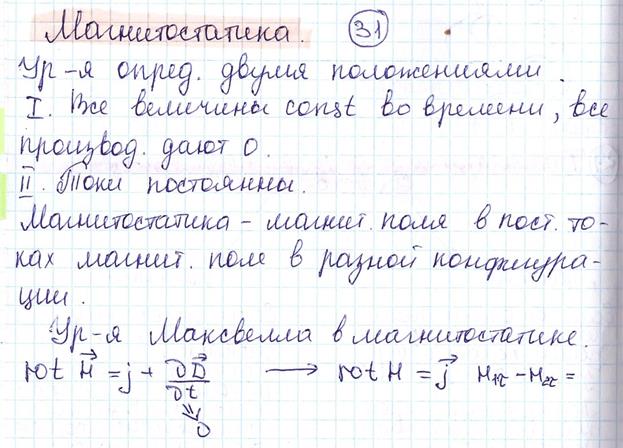 Магнитостатика. 31
Ур-я опред. двумя положениями.
I. Все величины const во времени, все
производ. дают 0.
II. Токи постоянны.
Магнитостатика - магнит. поля в пост. то-
ках магнит. поле в разной конфигура-
ции.
Ур-я Максвелла в магнитостатике.
rot H⃗ = j + ∂D⃗/∂t → rot H = j⃗ H₁τ - H₂τ =
0